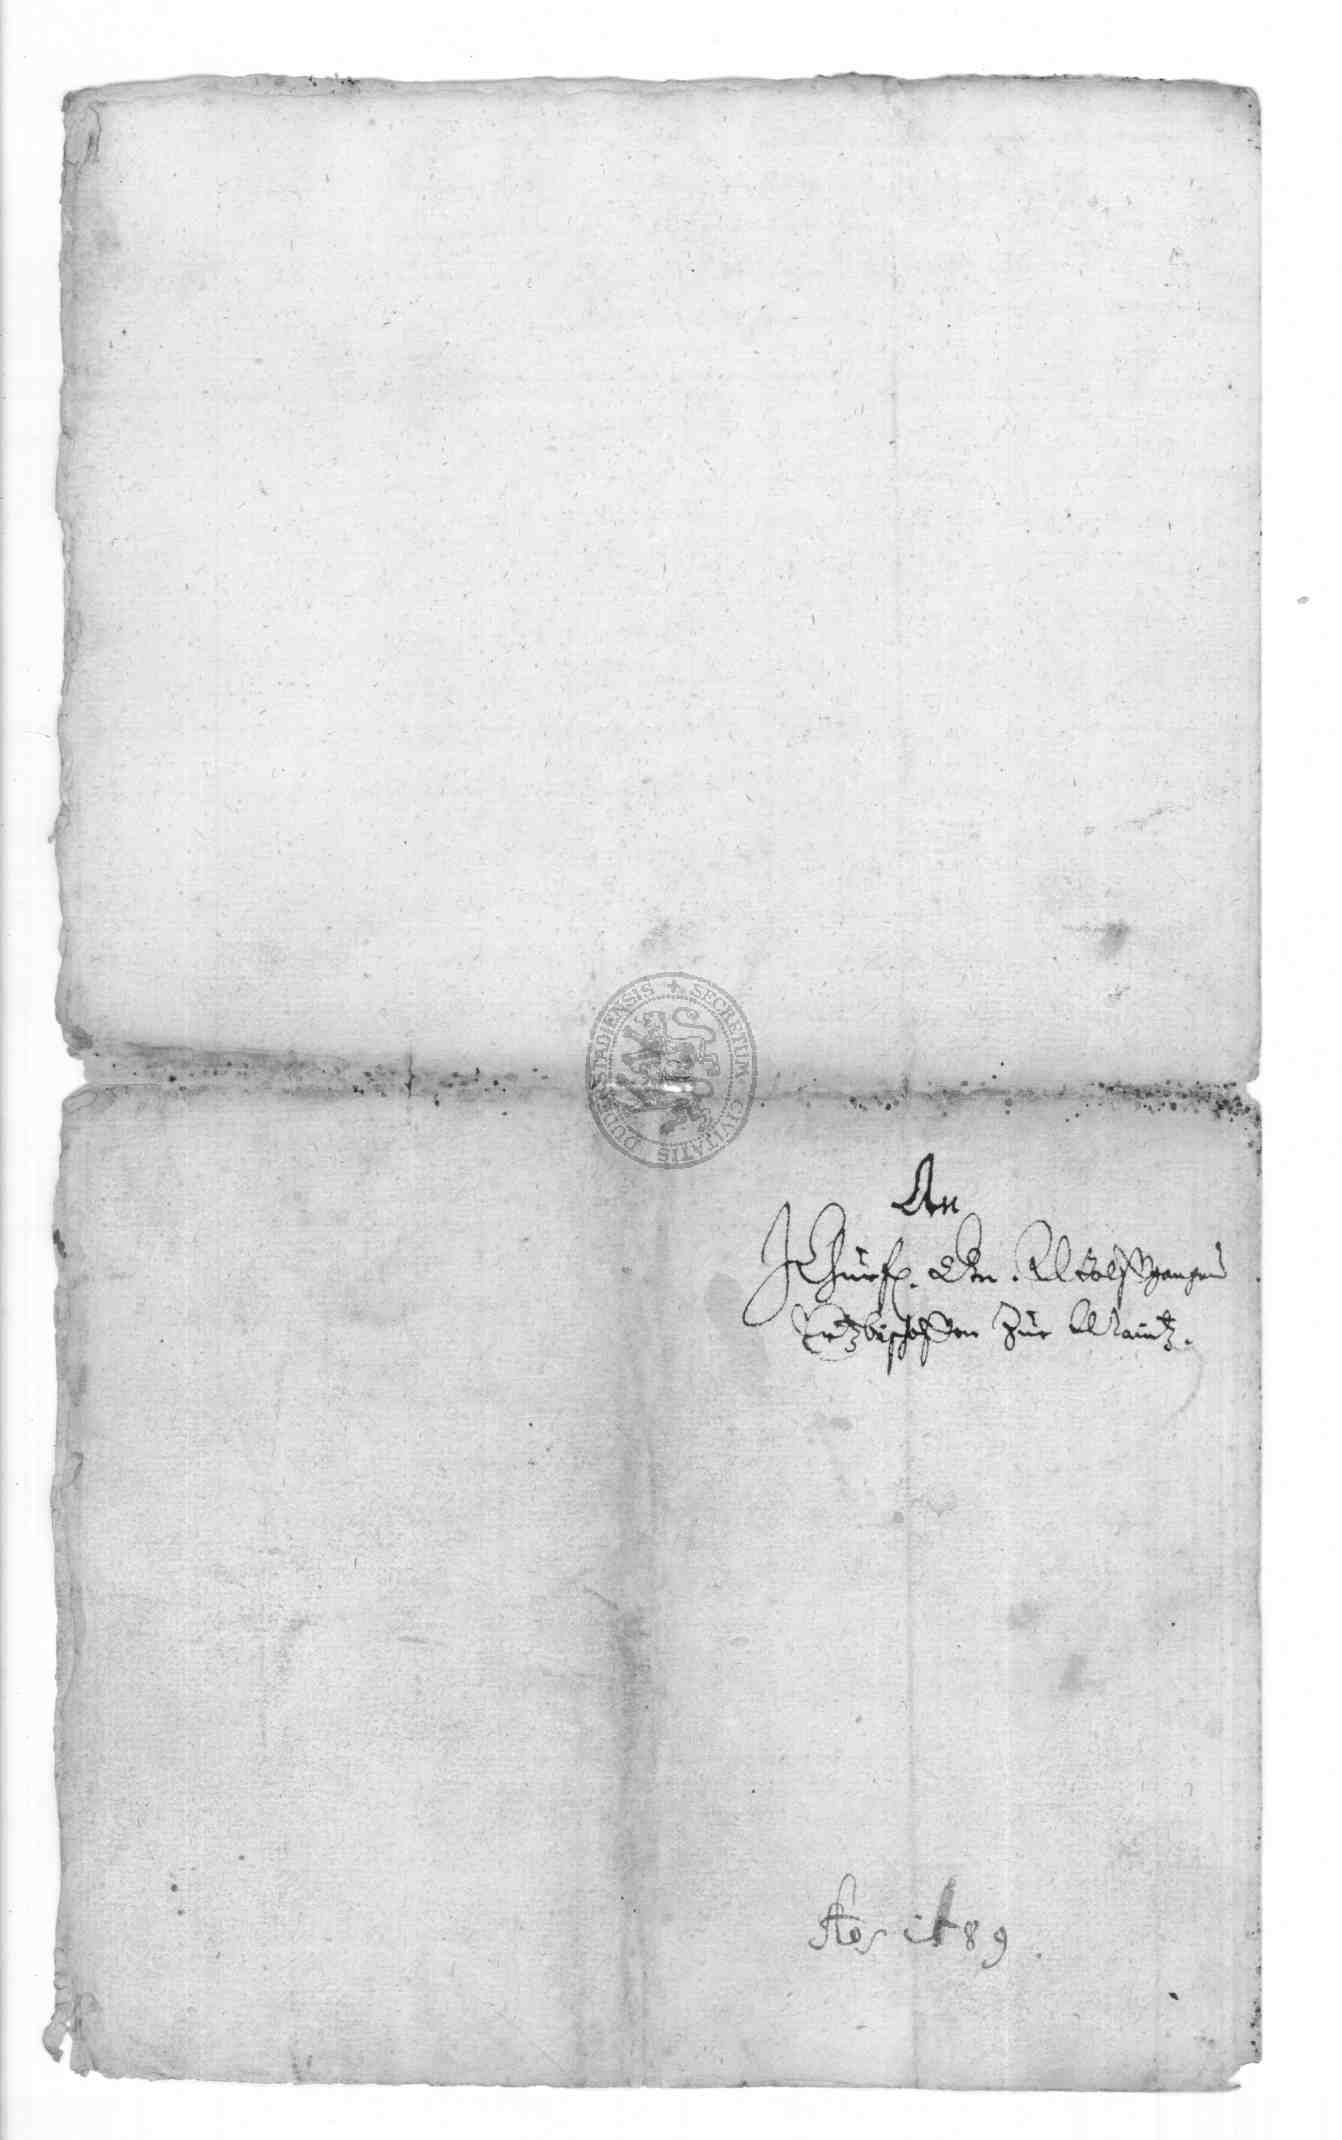 SECRETUM CIVITATIS DUDERSTADIENSIS
An
J Churf. Gn. Wolffgangen
Ertzbischoffen zur Maintz.
89